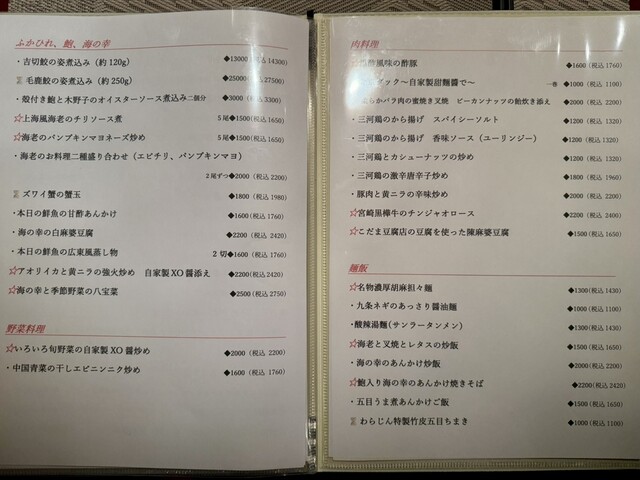 ふかひれ、鮑、海の幸
・吉切鮫の姿煮込み（約120g） ◆13000(税込14300)
毛鹿鮫の姿煮込み（約250g） ◆25000(税込27500)
・殻付き鮑と木野子のオイスターソース煮込み二個分 ◆3000(税込3300)
☆上海風海老のチリソース煮 5尾◆1500(税込1650)
☆海老のパンプキンマヨネーズ炒め 5尾◆1500(税込1650)
・海老のお料理二種盛り合わせ（エビチリ、パンプキンマヨ）
2尾ずつ◆2000(税込2200)
ズワイ蟹の蟹玉 ◆1800(税込1980)
・本日の鮮魚の甘酢あんかけ ◆1600(税込1760)
・海の幸の白麻婆豆腐 ◆2200(税込2420)
・本日の鮮魚の広東風蒸し物 2切◆1600(税込1760)
☆アオリイカと黄ニラの強火炒め 自家製XO醤添え ◆2200(税込2420)
☆海の幸と季節野菜の八宝菜 ◆2500(税込2750)
野菜料理
☆いろいろ旬野菜の自家製XO醤炒め ◆2000(税込 2200)
・中国青菜の干しエビニンニク炒め ◆1600(税込 1760)
肉料理
風味の酢豚 ◆1600(税込1760)
ック～自家製甜麺醬で～ 一巻 ◆1000(税込 1100)
らかバラ肉の蜜焼き叉焼 ピーカンナッツの飴炊き添え ◆2000(税込 2200)
・三河鶏のから揚げ スパイシーソルト ◆1200(税込 1320)
・三河鶏のから揚げ 香味ソース（ユーリンジー） ◆1200(税込1320)
・三河鶏とカシューナッツの炒め ◆1200(税込 1320)
・三河鶏の激辛唐辛子炒め ◆1800(税込 1960)
・豚肉と黄ニラの辛味炒め ◆2000(税込 2200)
☆宮崎黒樺牛のチンジャオロース ◆2200(税込 2400)
☆こだま豆腐店の豆腐を使った陳麻婆豆腐 ◆1500(税込1650)
麺飯
☆名物濃厚胡麻担々麺 ◆1300(税込1430)
・九条ネギのあっさり醤油麺 ◆1000(税込 1100)
・酸辣湯麺(サンラータンメン) ◆1300(税込1430)
☆海老と叉焼とレタスの炒飯 ◆1500(税込 1650)
・海の幸のあんかけ炒飯 ◆2000(税込 2200)
☆鮑入り海の幸のあんかけ焼きそば ◆2200(税込2420)
・五目うま煮あんかけご飯 ◆1500(税込1650)
わらじん特製竹皮五目ちまき ◆1000(税込1100)